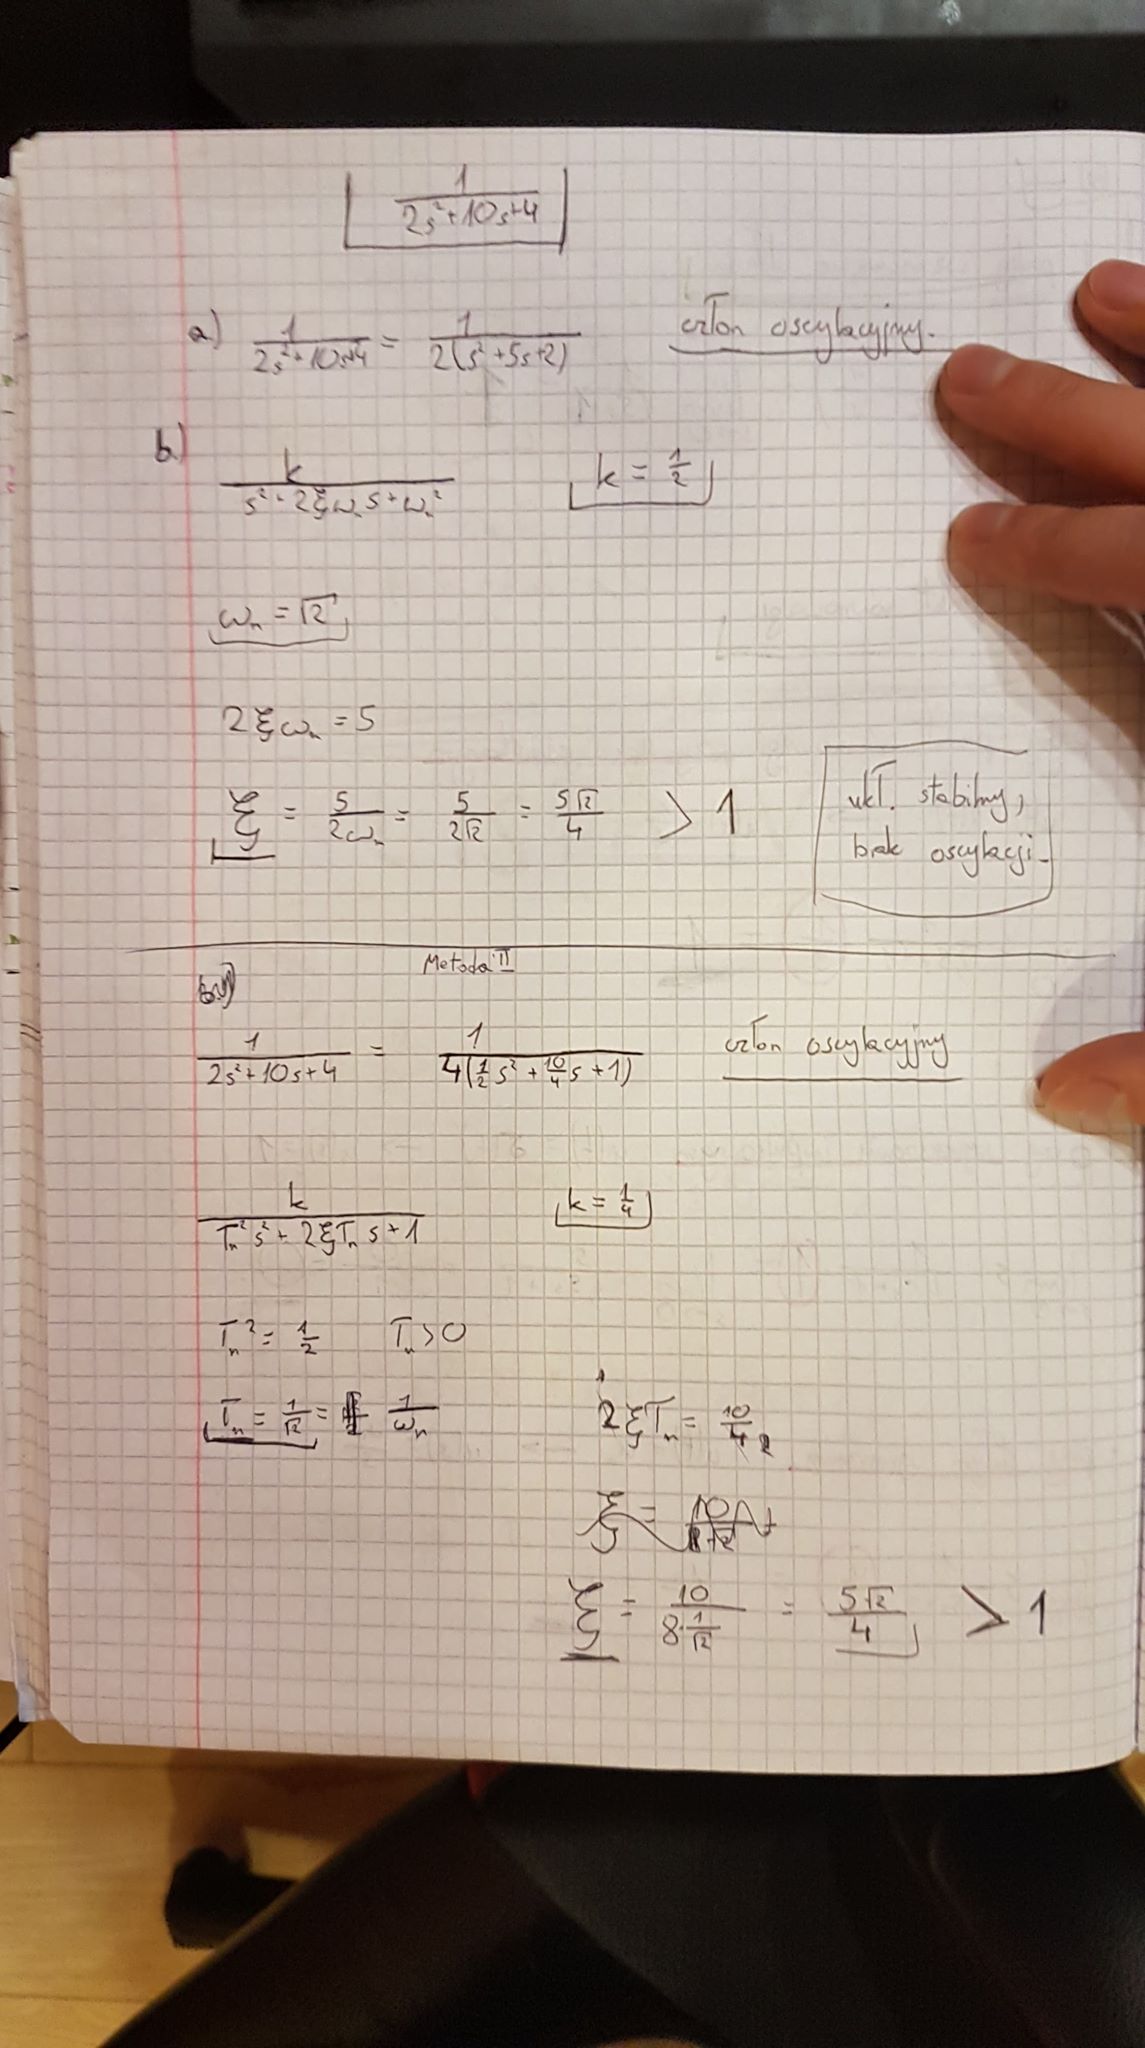 1/(2s²+10s+4)
a) 1/(2s²+10s+4) = 1/(2(s²+5s+2)) człon oscylacyjny.
b) k/(s²+2ξωₙs+ωₙ²) k = 1/2
ωₙ = √2
2ξωₙ = 5
ξ = 5/(2ωₙ) = 5/(2√2) = 5√2/4 > 1
ukł. stabilny,
brak oscylacji.
Metoda II
1/(2s²+10s+4) = 1/(4(1/2 s² + 10/4 s + 1)) człon oscylacyjny
k/(Tₙ²s² + 2ξTₙ s + 1) k = 1/4
Tₙ² = 1/2 Tₙ > 0
Tₙ = 1/√2 = 1/ωₙ
2ξTₙ = 10/4
ξ = 10/(8·1/√2) = 5√2/4 > 1